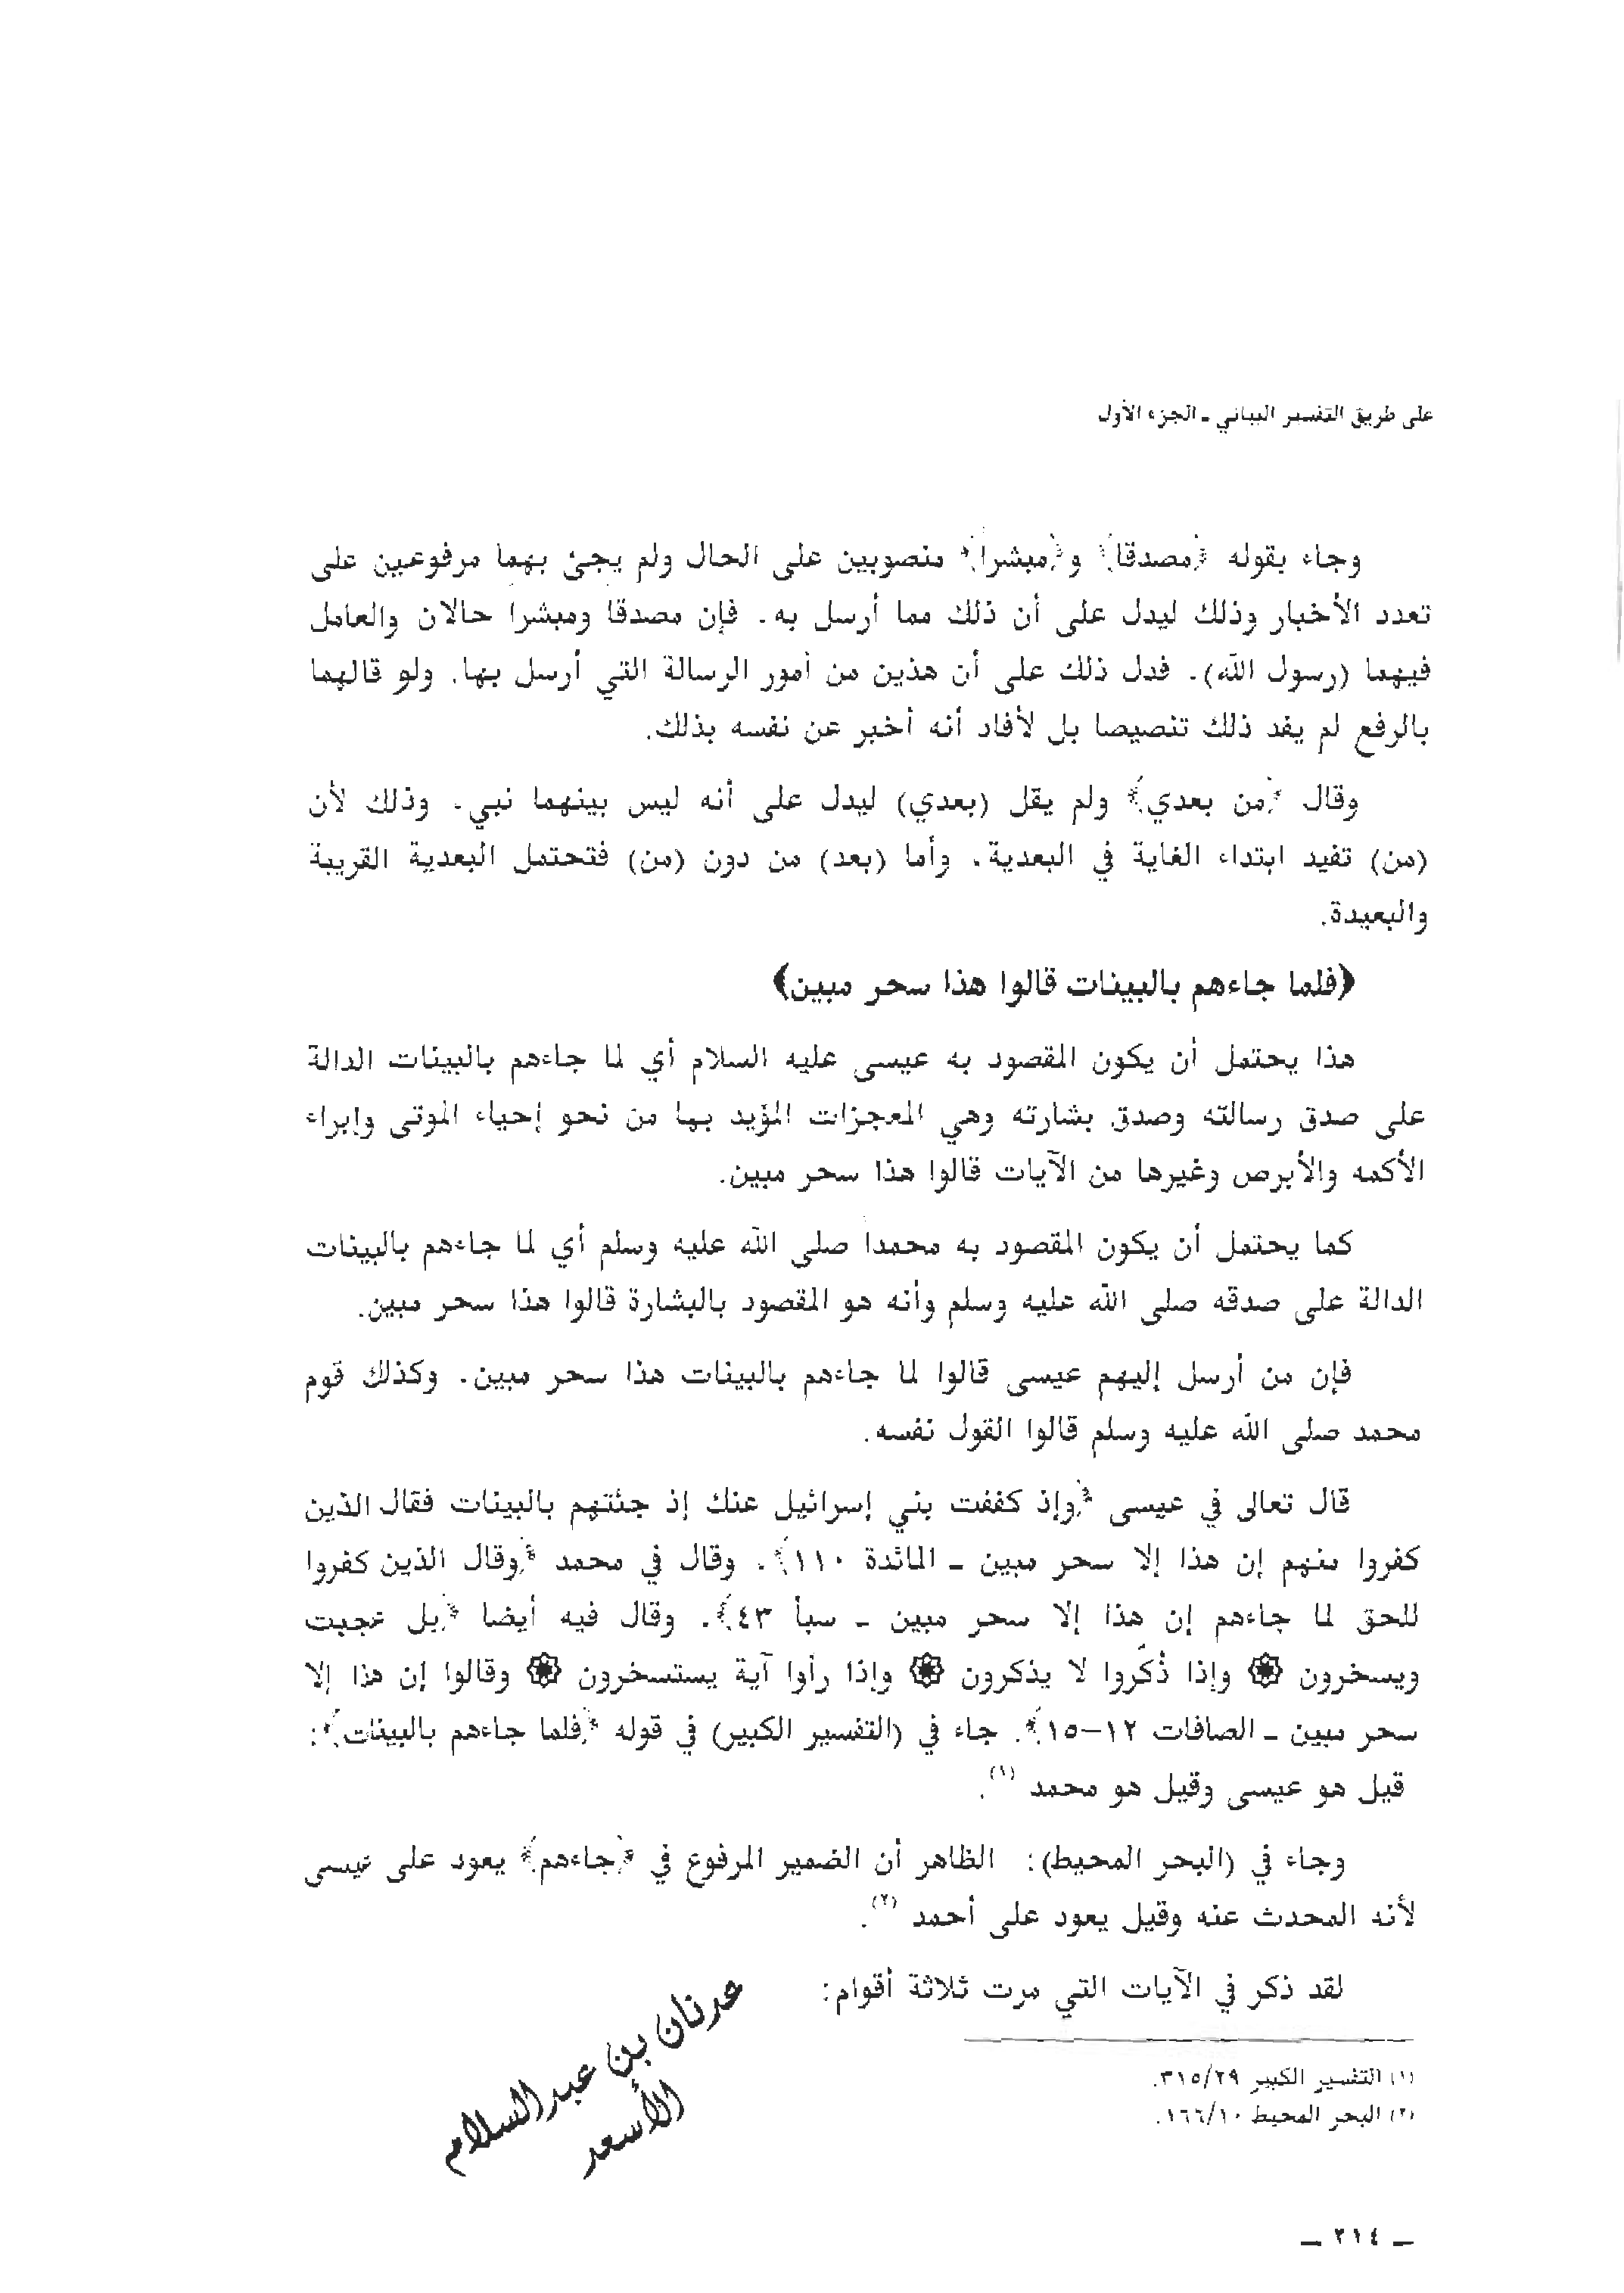 على طريق التفسير البياني ـ الجزء الأول
وجاء بقوله ﴿مصدقاً﴾ و﴿مبشراً﴾ منصوبين على الحال ولم يجئ بهما مرفوعين على
تعدد الأخبار وذلك ليدل على أن ذلك مما أرسل به. فإن مصدقاً ومبشراً حالان والعامل
فيهما (رسول الله). فدل ذلك على أن هذين من أمور الرسالة التي أرسل بها. ولو قالهما
بالرفع لم يفد ذلك تنصيصا بل لأفاد أنه أخبر عن نفسه بذلك.
وقال ﴿من بعدي﴾ ولم يقل (بعدي) ليدل على أنه ليس بينهما نبي. وذلك لأن
(من) تفيد ابتداء الغاية في البعدية. وأما (بعد) من دون (من) فتحتمل البعدية القريبة
والبعيدة.
﴿فلما جاءهم بالبينات قالوا هذا سحر مبين﴾
هذا يحتمل أن يكون المقصود به عيسى عليه السلام أي لما جاءهم بالبينات الدالة
على صدق رسالته وصدق بشارته وهي المعجزات المؤيد بها من نحو إحياء الموتى وإبراء
الأكمه والأبرص وغيرها من الآيات قالوا هذا سحر مبين.
كما يحتمل أن يكون المقصود به محمداً صلى الله عليه وسلم أي لما جاءهم بالبينات
الدالة على صدقه صلى الله عليه وسلم وأنه هو المقصود بالبشارة قالوا هذا سحر مبين.
فإن من أرسل إليهم عيسى قالوا لما جاءهم بالبينات هذا سحر مبين. وكذلك قوم
محمد صلى الله عليه وسلم قالوا القول نفسه.
قال تعالى في عيسى ﴿وإذ كففت بني إسرائيل عنك إذ جئتهم بالبينات فقال الذين
كفروا منهم إن هذا إلا سحر مبين ـ المائدة ١١٠﴾. وقال في محمد ﴿وقال الذين كفروا
للحق لما جاءهم إن هذا إلا سحر مبين ـ سبأ ٤٣﴾. وقال فيه أيضا ﴿بل عجبت
ويسخرون ۞ وإذا ذُكّروا لا يذكرون ۞ وإذا رأوا آية يستسخرون ۞ وقالوا إن هذا إلا
سحر مبين ـ الصافات ١٢–١٥﴾. جاء في (التفسير الكبير) في قوله ﴿فلما جاءهم بالبينات﴾:
قيل هو عيسى وقيل هو محمد (١).
وجاء في (البحر المحيط): الظاهر أن الضمير المرفوع في ﴿جاءهم﴾ يعود على عيسى
لأنه المحدث عنه وقيل يعود على أحمد (٢).
لقد ذكر في الآيات التي مرت ثلاثة أقوام:
(١) التفسير الكبير ٣١٥/٢٩.
(٢) البحر المحيط ١٦٦/١٠.
عدنان بن عبدالسلام
الأسعد
ـ ٢١٤ ـ